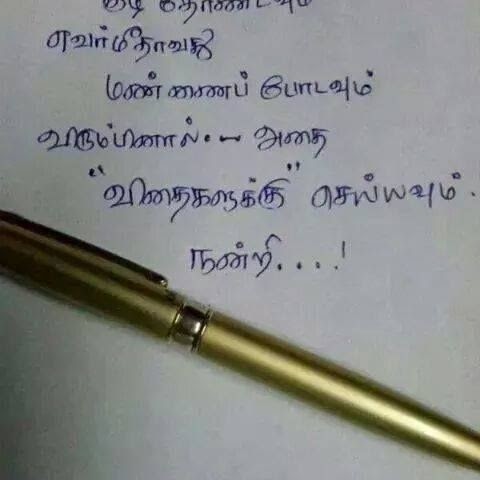 குழி தோண்டவும்
எவர்மீதாவது
மண்ணைப் போடவும்
விரும்பினால்.~ அதை
"விதைகளுக்கு" செய்யவும்.
நன்றி....!